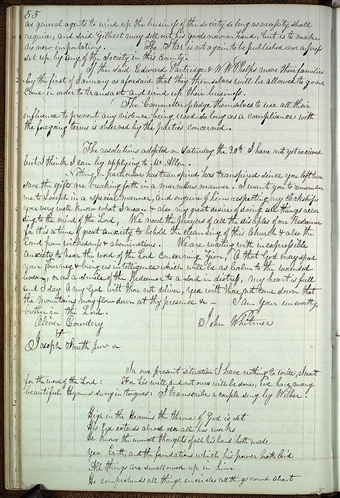 55
as general agents to wind up the business of the society, so long as necessity shall
require, and said Gilbert may sell out his goods now on hand, but is to make
no new importations. The Star is not again to be published nor a press
set up by any of the Society in this County.
If the said Edward Partridge & W. W. Phelps move their families
by the first of January as aforesaid that they themselves will be allowed to go and
come in order to transact and wind up their business.
The Committee pledge themselves to use all their
influence to prevent any violence being used so long as a compliance with
the foregoing terms is observed by the parties concerned.
The resolutions adopted on Saturday the 20th I have not yet received
but I think I can by applying to Mr. Allen.
Nothing in particular has transpired since you left here
save the gifts are breaking forth in a marvelous manner. I want you to remember
me to Joseph in a special manner, and enquire of him respecting my Clerkship
you very well know what I mean & also my great desire of doing all things accord-
ing to the mind of the Lord. We need the prayers of all the disciples of our Redeemer
for it is a time of great anxiety to behold the cleansing of this Church & also the
Land from wickedness & abominations. We are waiting with inexpressible
anxiety to hear the word of the Lord concerning Zion, O that God may speed
your Journey & bring us intelligence which will be as balm to the wounded
&c or as a diadem of the Redeemer to a soul in distress, my heart is full
and I say O my God wilt thou not deliver, yea wilt thou not come down that
the mountains may flow down at thy presence &c — I am your unworthy
brother in the Lord.
Oliver Cowdery John Whitmer
&
Joseph Smith Junr &c
In our present situation I have nothing to write, I wait
for the word of the Lord: For his will, and not ours will be done, we have many
beautiful Hymns sung in tongues: I transcribe a couple sung by Wilber.
High in the Heavens the throne of God is set
His Eye extends abroad over all his works
He knows the inmost thoughts of all his hand hath made
Yea Earth, and the foundations which his power hath laid
All things are swallowed up in him
He comprehends all things, encircles all things round about